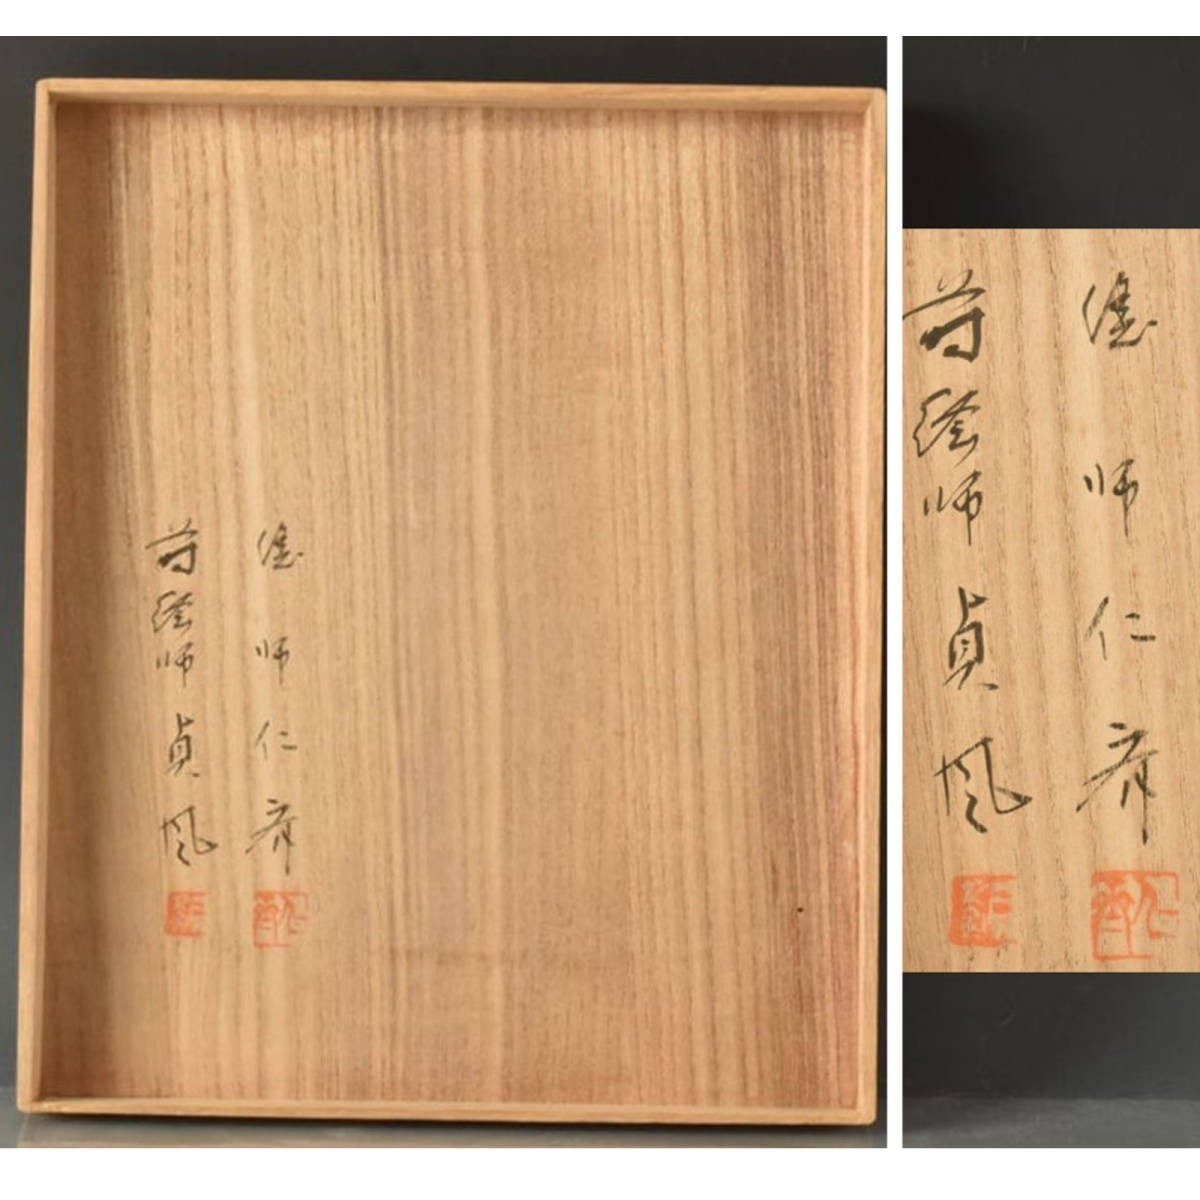 塗師仁斉
蒔絵師貞風
塗師仁斉
蒔絵師貞風